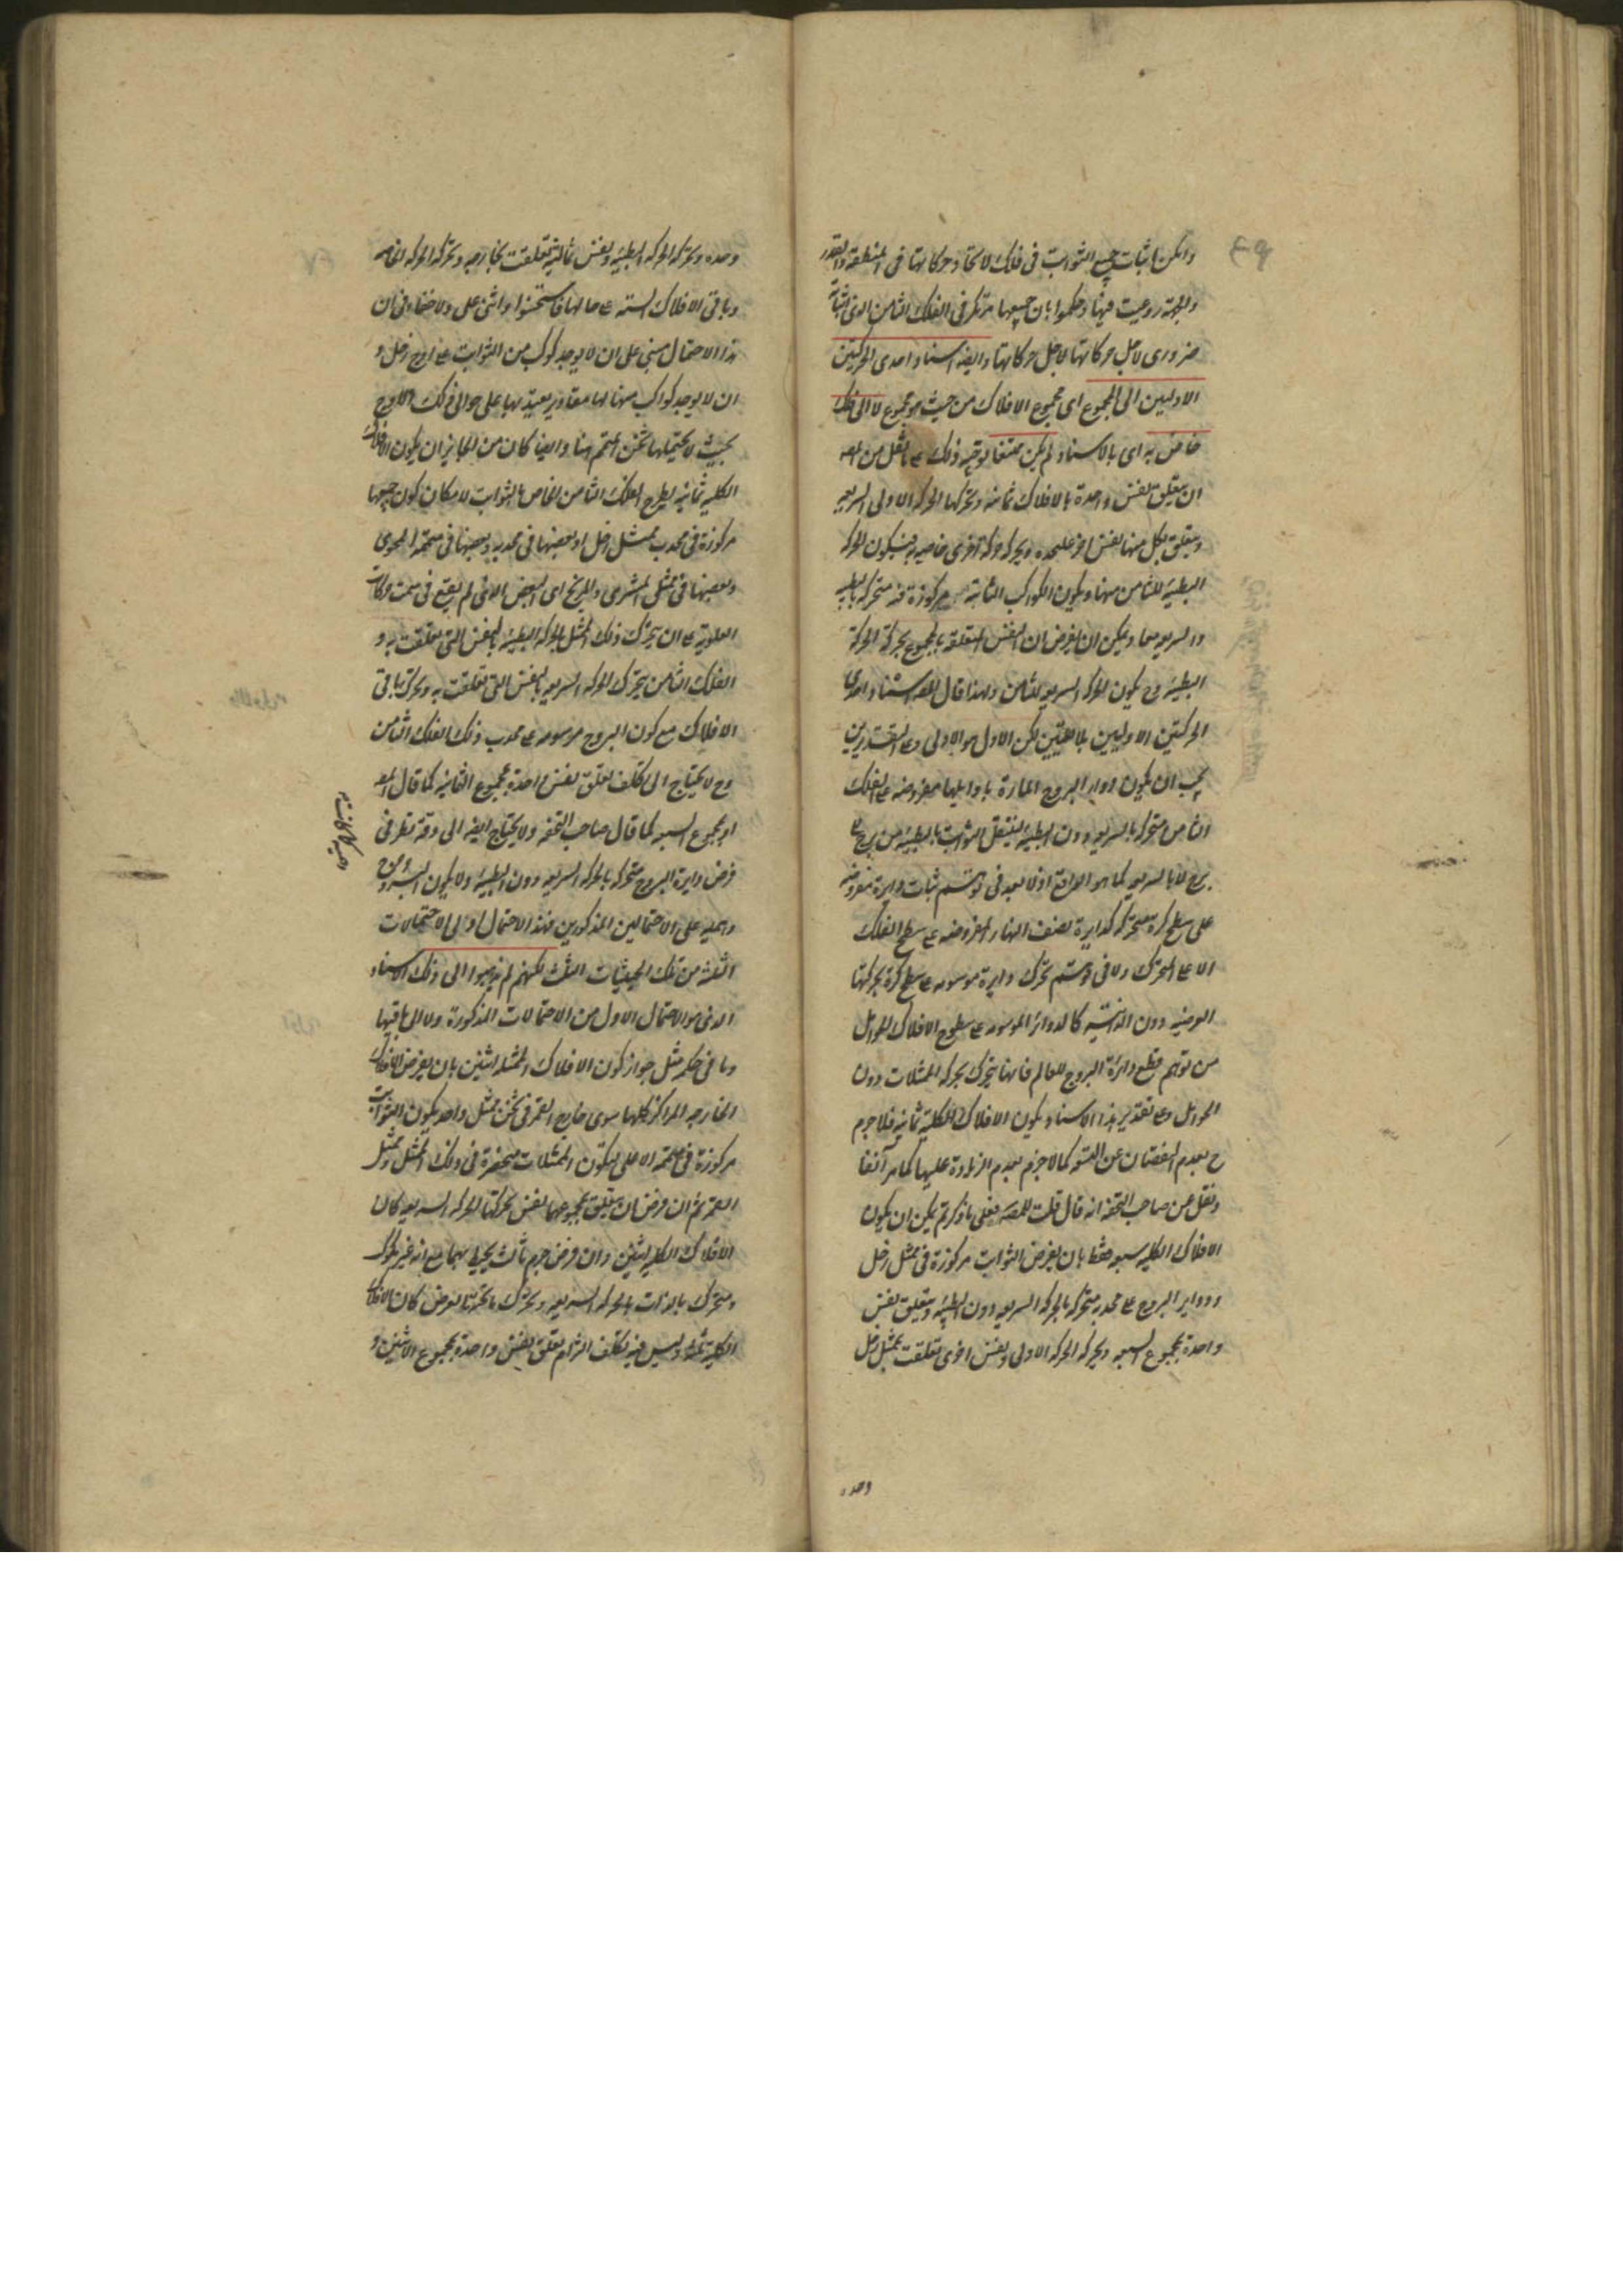 وامكن اثبات جميع الثوابت في فلك لاتحاد حركاتها في المنطقة والقدر
والجهة روعيت فيها وحكموا بان جميعها مرتكز في الفلك الثامن الذي اثباته
ضروري لاجل حركاتها لاجل حركاتها وايضا اسناد احدى الحركتين
الاوليين الى المجموع اى مجموع الافلاك من حيث هو مجموع لا الى فلك
خاص به اى بالاسناد لم يكن ممتنعا توجيه ذلك على ما نقل من المص
ان يتعلق نفس واحدة بالافلاك ثمانية ويحركها الحركة الاولى السريعة
ويتعلق بكل منها نفس اخرى عليحده ويحركه حركة اخرى خاصة به فيكون الحركة
البطيئة للثامن منها ويكون الكواكب الثابتة مركوزة فيه متحركة بالبطيئة
والسريعة معا ويمكن ان يفرض ان النفس المتعلقة بالمجموع يحركه الحركة
البطيئة وح يكون الحركة السريعة للثامن ولهذا قال المص اسناد احدى
الحركتين الاوليين بلا تعيين لكن الاول هو الاولى وعلى التقديرين
يجب ان يكون دواير البروج المارة باوايلها مفروضة على الفلك
الثامن متحركة بالسريعة دون البطيئة لينتقل الثوابت بالبطيئة من برج الى
برج لا بالسريعة كما هو الواقع اذ لا بعد في توهم ثبات دايرة مفروضة
على سطح كرة متحركة كدايرة نصف النهار المفروضة على سطح الفلك
الاعلى المتحرك ولا في توهم تحرك دايرة موسومة على سطح كرة بحركتها
العرضية دون الذاتية كالدوائر الموسومة على سطوح الافلاك الحوامل
من توهم قطع دائرة البروج للعالم فانها يتحرك بحركة الممثلات دون
الحوامل وعلى تقدير هذا الاسناد يكون الافلاك الكلية ثمانية فلا جزم
ح بعدم النقصان عن التسعة كما لا جزم بعدم الزيادة عليها كما مر آنفا
ونقل عن صاحب التحفة انه قال قلت للمص فعلى ما ذكرتم يمكن ان يكون
الافلاك الكلية سبعة فقط بان يفرض الثوابت مركوزة في ممثل زحل
ودواير البروج على محدبه متحركة بالحركة السريعة دون البطيئة ويتعلق نفس
واحدة بمجموع السبعة ويحركه الحركة الاولى ونفس اخرى تعلقت بممثل زحل
وحده
وحده ويحركه الحركة البطيئة ونفس ثالثة تعلقت بخارجه ويحركه الحركة الخاصة
وباقي الافلاك الستة على حالها فاستحسنوا واثنى على ولا خفاء في ان
هذا الاحتمال مبني على ان لا يوجد كوكب من الثوابت على اوج زحل و
ان لا يوجد كواكب منها لها مقادير يعتد بها على حوالي ذلك الاوج
بحيث لا يحتملها ثخن المتمم هنا وايضا كان من الجايز ان يكون الافلاك
الكلية ثمانية بطرح الفلك الثامن الخاص بالثوابت لامكان كون جميعها
مركوزة في محدب ممثل زحل او بعضها في محدبه وبعضها في متممه المحوى
وبعضها في ممثلي المشترى والمريخ اى البعض الذي لم يقع في سمت حركات
العلوية على ان يتحرك ذلك الممثل بالحركة البطيئة بالنفس التي تعلقت به و
الفلك الثامن يتحرك الحركة السريعة بالنفس التي تعلقت به ويحرك باقي
الافلاك مع كون البروج مرسومة على محدب ذلك الفلك الثامن
وح لا يحتاج الى تكلف تعلق نفس واحدة بمجموع الثمانية كما قال المص
او بمجموع السبعة كما قال صاحب التحفة ولا يحتاج ايضا الى دقة نظر في
فرض دايرة البروج متحركة بالحركة السريعة دون البطيئة ولا يكون البروج
واهمية على الاحتمالين المذكورين فهذا الاحتمال اولى الاحتمالات
الثلث من تلك الحيثيات الثلث لكنهم لم يذهبوا الى ذلك الاسناد
الذي هو الاحتمال الاول من الاحتمالات المذكورة ولا الى باقيها
وما في حكمه مثل جواز كون الافلاك الممثلة اثنين بان يفرض الافلاك
الخارجة المراكز كلها سوى خارج القمر في ثخن ممثل واحد يكون الثوابت
مركوزة في متممه الاعلى ليكون الممثلات منحصرة في ذلك الممثل وممثل
القمر ثم ان فرض ان يتعلق بمجموعهما نفس تحركها الحركة السريعة كان
الافلاك الكلية اثنين وان فرض جرم ثالث يحيط بهما مع انه غير مكوكب
ومتحرك بالذات بالحركة السريعة ويحرك ما تحته بالعرض كان الافلاك
الكلية ثلثة وليس فيه تكلف التزام تعلق نفس واحدة بمجموع الاثنين و